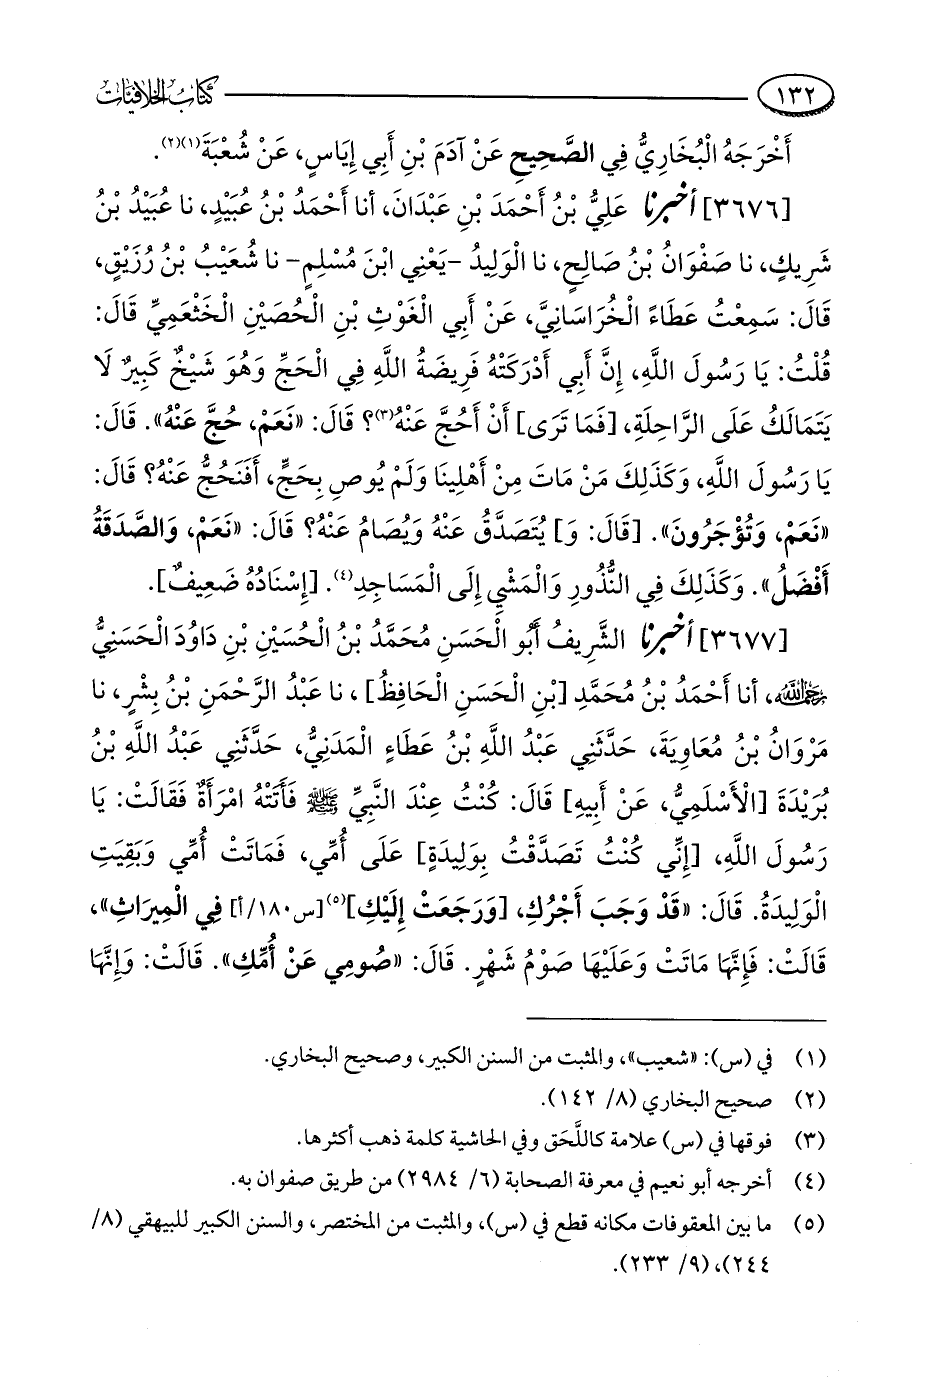 ١٣٢ كتاب الخلافيات
أَخْرَجَهُ الْبُخَارِيُّ فِي الصَّحِيحِ عَنْ آدَمَ بْنِ أَبِي إِيَاسٍ، عَنْ شُعْبَةَ(١)(٢).
[٣٦٧٦] أخبرنا عَلِيُّ بْنُ أَحْمَدَ بْنِ عَبْدَانَ، أنا أَحْمَدُ بْنُ عُبَيْدٍ، نا عُبَيْدُ بْنُ
شَرِيكٍ، نا صَفْوَانُ بْنُ صَالِحٍ، نا الْوَلِيدُ -يَعْنِي ابْنَ مُسْلِمٍ- نا شُعَيْبُ بْنُ رُزَيْقٍ،
قَالَ: سَمِعْتُ عَطَاءً الْخُرَاسَانِيَّ، عَنْ أَبِي الْغَوْثِ بْنِ الْحُصَيْنِ الْخَثْعَمِيِّ قَالَ:
قُلْتُ: يَا رَسُولَ اللَّهِ، إِنَّ أَبِي أَدْرَكَتْهُ فَرِيضَةُ اللَّهِ فِي الْحَجِّ وَهُوَ شَيْخٌ كَبِيرٌ لَا
يَتَمَالَكُ عَلَى الرَّاحِلَةِ، [فَمَا تَرَى] أَنْ أَحُجَّ عَنْهُ(٣)؟ قَالَ: «نَعَمْ، حُجَّ عَنْهُ». قَالَ:
يَا رَسُولَ اللَّهِ، وَكَذَلِكَ مَنْ مَاتَ مِنْ أَهْلِينَا وَلَمْ يُوصِ بِحَجٍّ، أَفَنَحُجُّ عَنْهُ؟ قَالَ:
«نَعَمْ، وَتُؤْجَرُونَ». [قَالَ: وَ] يُتَصَدَّقُ عَنْهُ وَيُصَامُ عَنْهُ؟ قَالَ: «نَعَمْ، وَالصَّدَقَةُ
أَفْضَلُ». وَكَذَلِكَ فِي النُّذُورِ وَالْمَشْيِ إِلَى الْمَسَاجِدِ(٤). [إِسْنَادُهُ ضَعِيفٌ].
[٣٦٧٧] أخبرنا الشَّرِيفُ أَبُو الْحَسَنِ مُحَمَّدُ بْنُ الْحُسَيْنِ بْنِ دَاوُدَ الْحَسَنِيُّ
رحمه الله، أنا أَحْمَدُ بْنُ مُحَمَّدِ [بْنِ الْحَسَنِ الْحَافِظُ]، نا عَبْدُ الرَّحْمَنِ بْنُ بِشْرٍ، نا
مَرْوَانُ بْنُ مُعَاوِيَةَ، حَدَّثَنِي عَبْدُ اللَّهِ بْنُ عَطَاءٍ الْمَدَنِيُّ، حَدَّثَنِي عَبْدُ اللَّهِ بْنُ
بُرَيْدَةَ [الْأَسْلَمِيُّ، عَنْ أَبِيهِ] قَالَ: كُنْتُ عِنْدَ النَّبِيِّ ﷺ فَأَتَتْهُ امْرَأَةٌ فَقَالَتْ: يَا
رَسُولَ اللَّهِ، [إِنِّي كُنْتُ تَصَدَّقْتُ بِوَلِيدَةٍ] عَلَى أُمِّي، فَمَاتَتْ أُمِّي وَبَقِيَتِ
الْوَلِيدَةُ. قَالَ: «قَدْ وَجَبَ أَجْرُكِ، [وَرَجَعَتْ إِلَيْكِ](٥)[س١٨٠/أ] فِي الْمِيرَاثِ»،
قَالَتْ: فَإِنَّهَا مَاتَتْ وَعَلَيْهَا صَوْمُ شَهْرٍ. قَالَ: «صُومِي عَنْ أُمِّكِ». قَالَتْ: وَإِنَّهَا
(١) في (س): «شعيب»، والمثبت من السنن الكبير، وصحيح البخاري.
(٢) صحيح البخاري (٨/ ١٤٢).
(٣) فوقها في (س) علامة كاللَّحَق وفي الحاشية كلمة ذهب أكثرها.
(٤) أخرجه أبو نعيم في معرفة الصحابة (٦/ ٢٩٨٤) من طريق صفوان به.
(٥) ما بين المعقوفات مكانه قطع في (س)، والمثبت من المختصر، والسنن الكبير للبيهقي (٨/
٢٤٤)، (٩/ ٢٣٣).